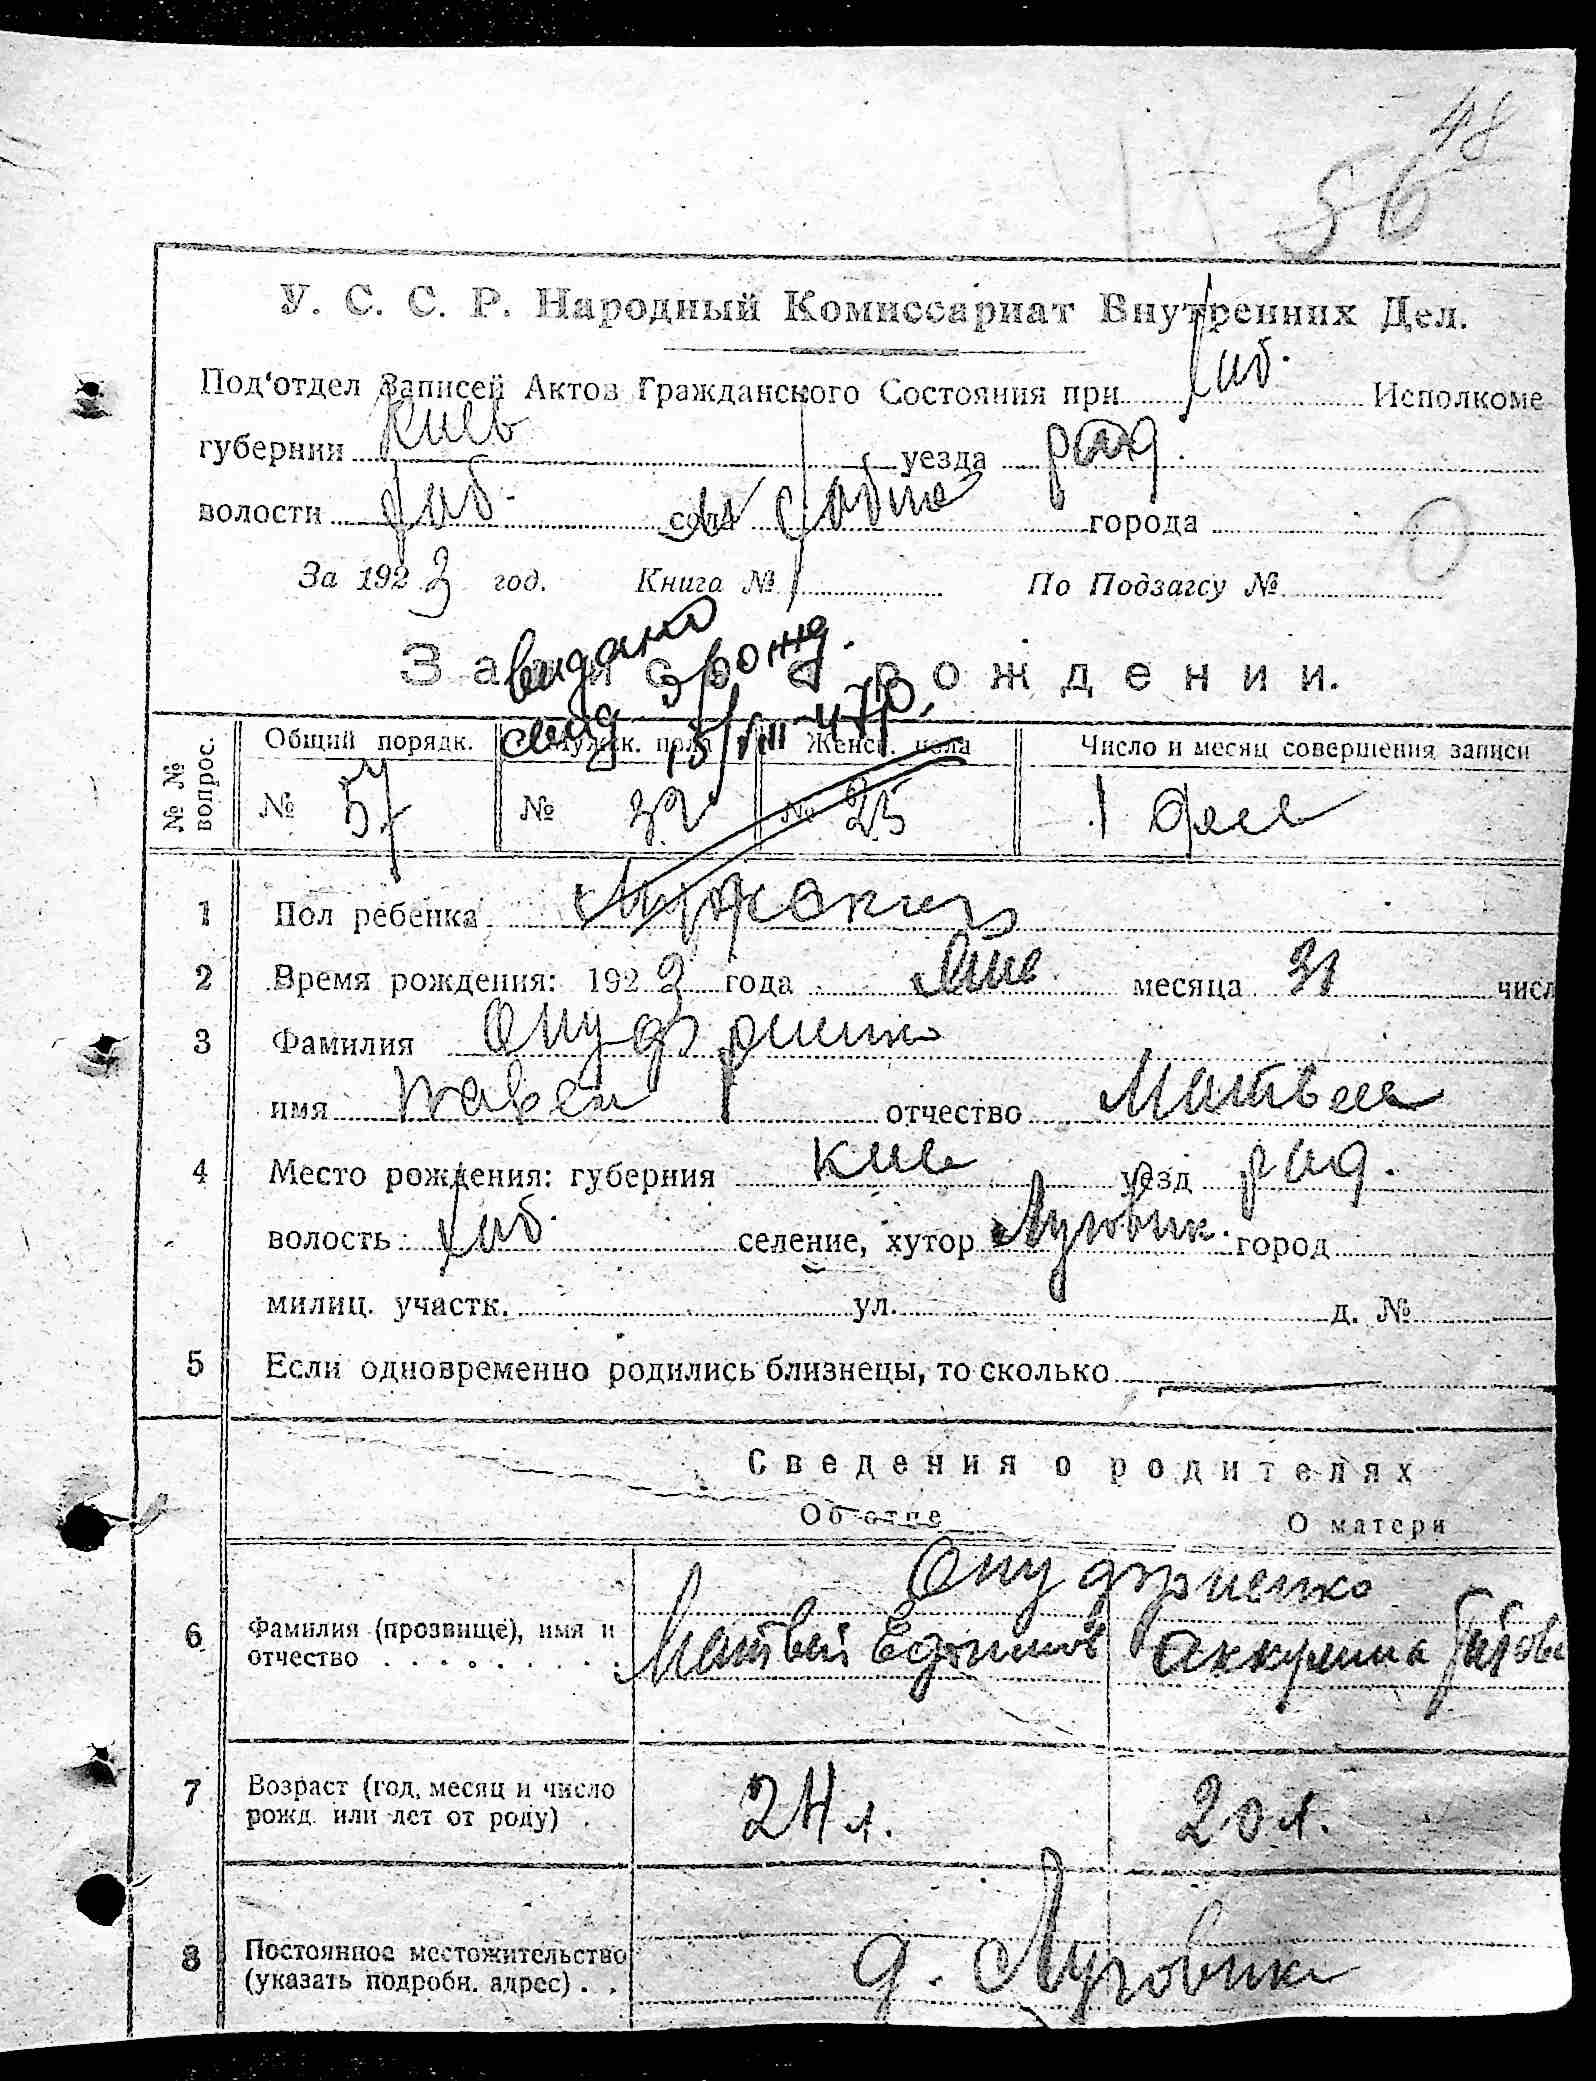 48
56
У. С. С. Р. Народный Комиссариат Внутренних Дел.
Под'отдел Записей Актов Гражданского Состояния при Хаб. Исполкоме
губернии Киев уезда рад.
волости Хаб. села м Хабно города
За 1923 год. Книга № По Подзагсу №
Запись о рождении.
видано
свид. о рожд.
13/VIII-47р.
№№ вопрос.
Общий порядк. Мужск. пола Женск. пола Число и месяц совершения записи
№ 57 № 32 № 25 1
1 Пол ребенка Мужской
2 Время рождения: 1923 года месяца 31 числ
3 Фамилия
имя отчество Матвеев
4 Место рождения: губерния Киев уезд рад.
волость Хаб. селение, хутор Луговик. город
милиц. участк. ул. д. №
5 Если одновременно родились близнецы, то сколько
Сведения о родителях
Об отце О матери
Онуфриенко
6 Фамилия (прозвище), имя и отчество Матвей Ефимов Аккулина
7 Возраст (год, месяц и число рожд. или лет от роду) 24 л. 20 л.
8 Постоянное местожительство (указать подробн. адрес) д. Луговики